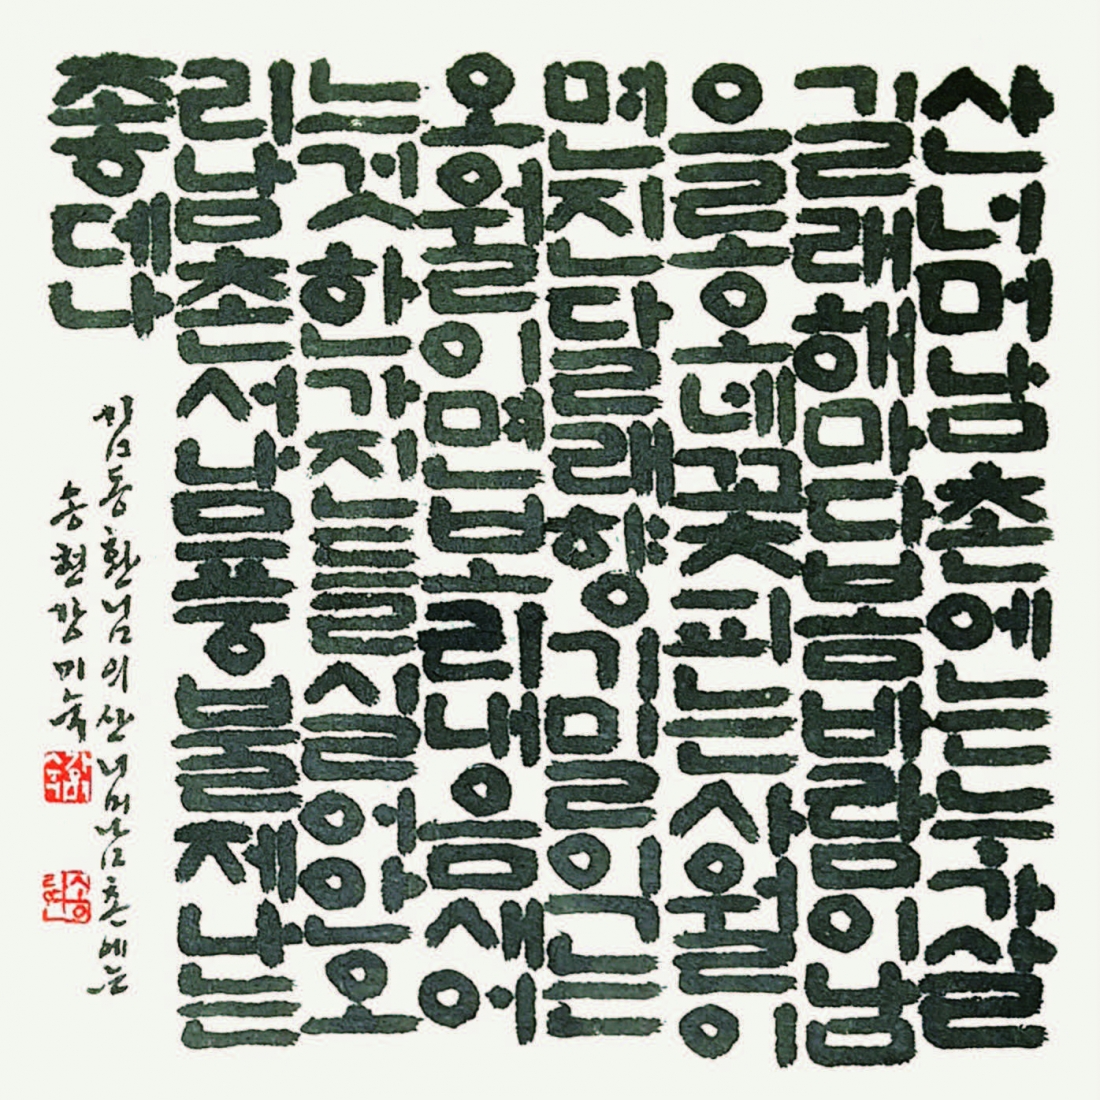 산너머남촌에는누가살
길래해마다봄바람이남
으로오네꽃피는사월이
면진달래향기밀익는
오월이면보리내음새어
느것한가진들실어안오
리남촌서남풍불제나는
좋데나
김동환님의산너머남촌에는
송현강미숙